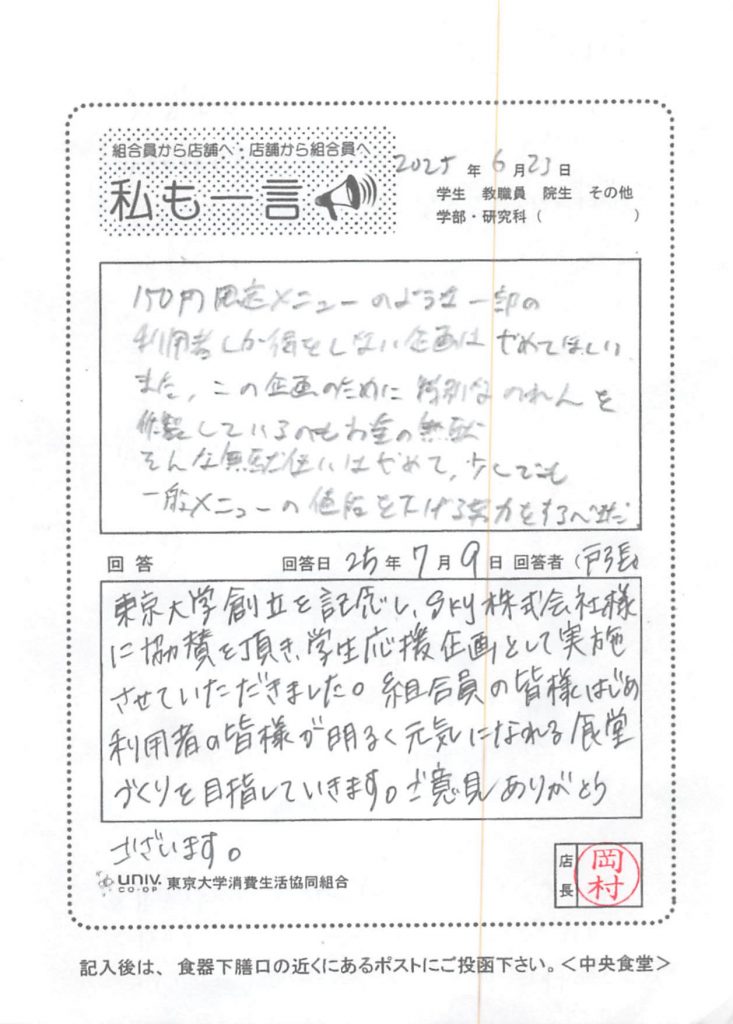 組合員から店舗へ・店舗から組合員へ
私も一言
2025年6月23日
学生 教職員 院生 その他
学部・研究科( )
150円限定メニューのような一部の
利用者しか得をしない企画はやめてほしい
また、この企画のために特別なのれんを
作製しているのもお金の無駄
そんな無駄使いはやめて、少しでも
一般メニューの値段を下げる努力をするべきだ
回答 回答日 25年7月9日 回答者(戸張)
東京大学創立を記念し、Sky株式会社様
に協賛を頂き、学生応援企画として実施
させていただきました。組合員の皆様はじめ
利用者の皆様が明るく元気になれる食堂
づくりを目指していきます。ご意見ありがとう
ございます。
UNIV. CO-OP 東京大学消費生活協同組合
店長 岡村
記入後は、食器下膳口の近くにあるポストにご投函下さい。<中央食堂>